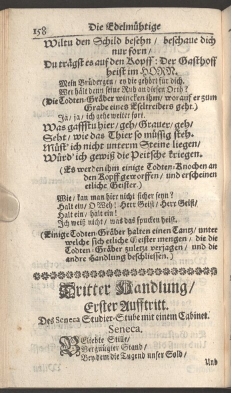 158 Die Edelmühtige
Wiltu den Schild besehn / beschaue dich
nur forn /
Du trägst es auf den Kopf: Der Gasthoff
heist im HORN.
Mein Brüdergen / en die gehört für dich.
Wer hält denn seine Ruh an diesen Orth?
(Die Todten-Gräber wincken ihm / worauf er zum
Grabe eines Eselreibers geht.)
Ja / ja / ich gehe weiter fort.
Was gaffstu hier / geh / Grauer / geh /
Seht / wie das Thier so müssig steh.
Müst' ich nicht unterm Steine liegen /
Würd' ich gewiß die Peitsche kriegen.
(Es werden ihm einige Todten-Knochen an
den Kopf geworffen / und erscheinen
etliche Geister.)
Wie / kan man hier nicht sicher seyn?
Halt ein / O Weh! Herr Geist / Herr Geist /
Halt ein / halt ein!
Ich weiß nicht / was das spucken heist.
(Einige Todten-Gräber halten einen Tantz / unter
welche sich etliche Geister mengen / die die
Todten-Gräber zuletzt verjagen / und die
andre Handlung beschliessen.)
Dritter Handlung /
Erster Aufftritt.
Des Seneca Studier-Stube mit einem Cabinet.
Seneca.
Beliebte Stille /
Vergnügter Stand /
Bey dem die Tugend unser Gold /
Und